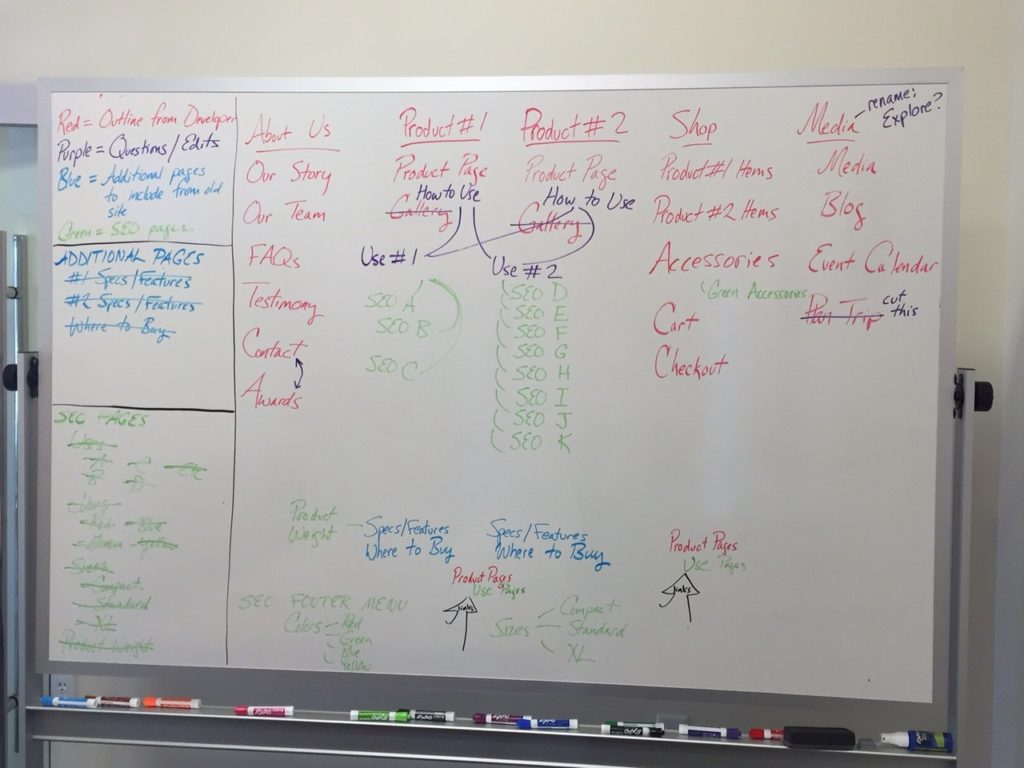 Red = Outline from Developer
Purple = Questions/Edits
Blue = Additional pages
to include from old
site
Green = SEO pages
ADDITIONAL PAGES
#1 Specs/Features
#2 Specs/Features
Where to Buy
SEO PAGES
Uses
A C Etc
B D
Colors
Red Blue
Green Yellow
Sizes
Compact
Standard
XL
Product Weight
About Us
Our Story
Our Team
FAQs
Testimony
Contact
Awards
Product #1
Product Page
How to Use
Gallery
Use #1
SEO A
SEO B
SEO C
Product #2
Product Page
How to Use
Gallery
Use #2
SEO D
SEO E
SEO F
SEO G
SEO H
SEO I
SEO J
SEO K
Shop
Product #1 Items
Product #2 Items
Accessories
Green Accessories
Cart
Checkout
Media
rename:
Explore?
Media
Blog
Event Calendar
Plan Trip
cut
this
Product
Weight
Specs/Features
Where to Buy
Specs/Features
Where to Buy
Product Pages
Use Pages
links
Product Pages
Use Pages
links
SEO FOOTER MENU
Colors
Red
Green
Blue
Yellow
Sizes
Compact
Standard
XL